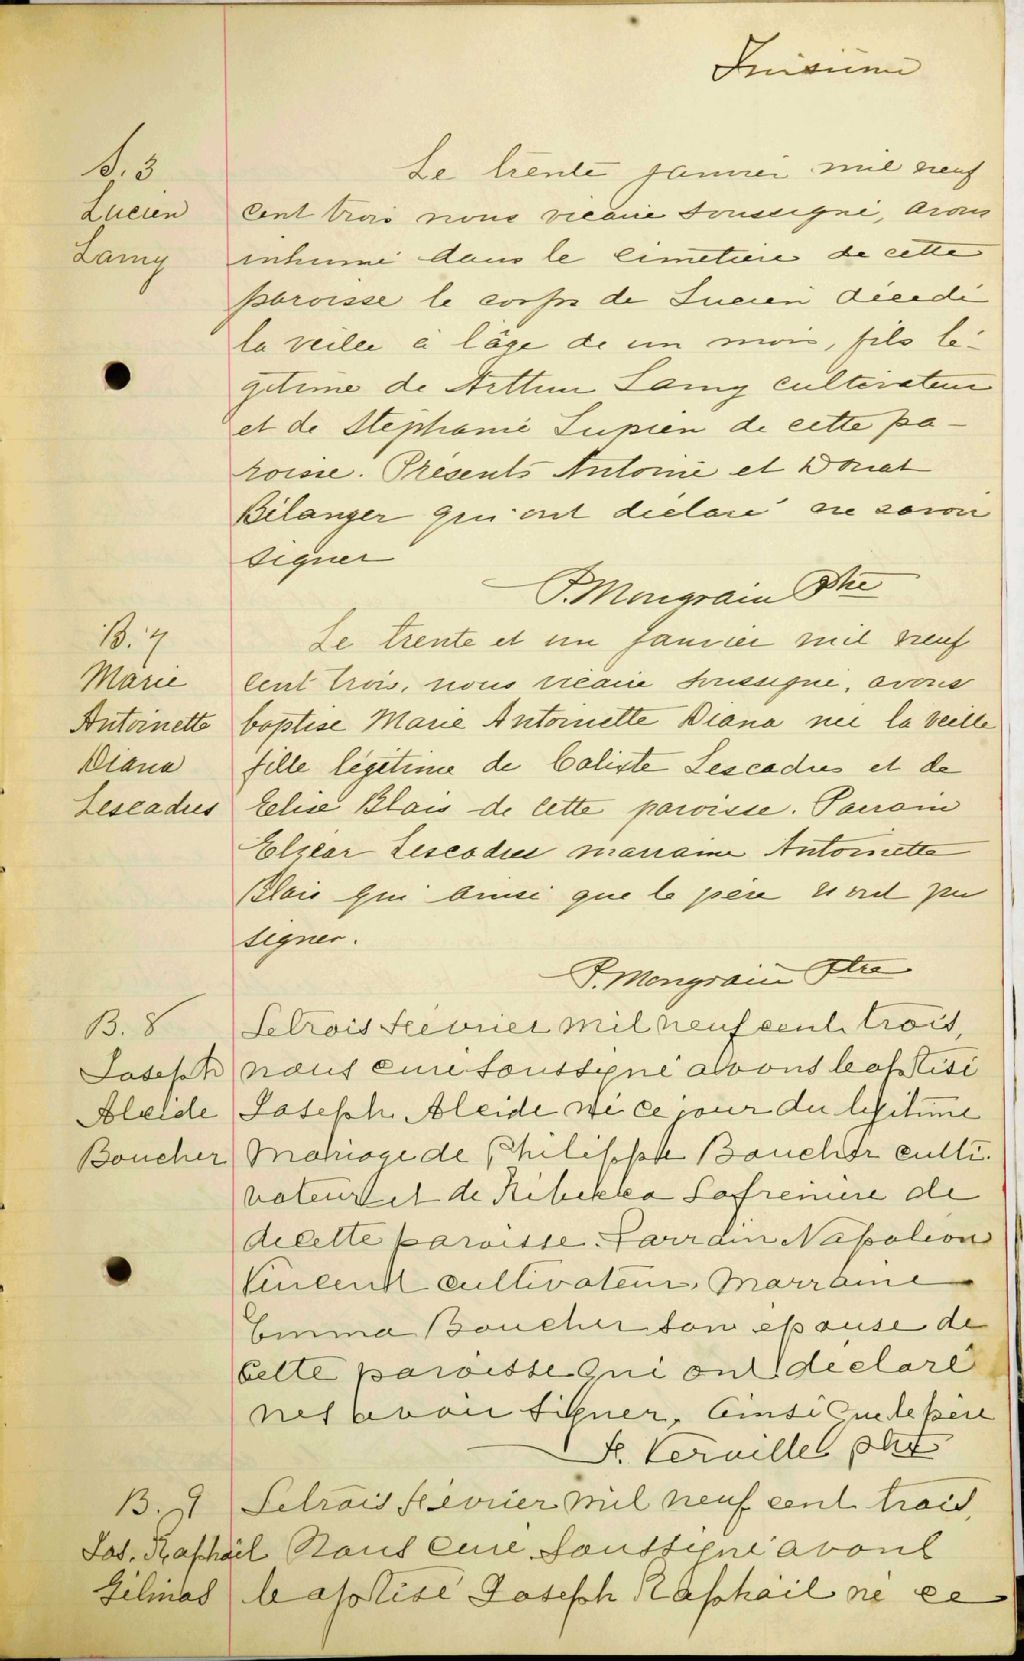 Troisième
S. 3
Lucien
Lamy
Le trente janvier mil neuf
cent trois nous vicaire soussigné, avons
inhumé dans le cimetière de cette
paroisse le corps de Lucien décédé
la veille à l'âge de un mois, fils lé-
gitime de Arthur Lamy cultivateur
et de Stéphanie Lupien de cette pa-
roisse. Présents Antoine et Donat
Bélanger qui ont déclaré ne savoir
signer
P. Mongrain Ptre
B. 7
Marie
Antoinette
Diana
Lescadres
Le trente et un janvier mil neuf
cent trois, nous vicaire soussigné, avons
baptisé Marie Antoinette Diana née la veille
fille légitime de Calixte Lescadres et de
Elise Blais de cette paroisse. Parrain
Elzéar Lescadres marraine Antoinette
Blais qui ainsi que le père n'ont pu
signer.
P. Mongrain Ptre
B. 8
Joseph
Alcide
Boucher
Le trois Février mil neuf cent trois,
nous curé soussigné avons baptisé
Joseph Alcide né ce jour du légitime
mariage de Philippe Boucher culti-
vateur et de Rébecca Lafrenière de
de cette paroisse. Parrain Napoléon
Vincent cultivateur, Marraine
Emma Boucher son épouse de
cette paroisse qui ont déclaré
ne savoir signer, ainsi que le père
F. Verville ptre
B. 9
Jos. Raphaël
Gélinas
Le trois Février mil neuf cent trois,
Nous Curé Soussigné avons
baptisé Joseph Raphaël né ce